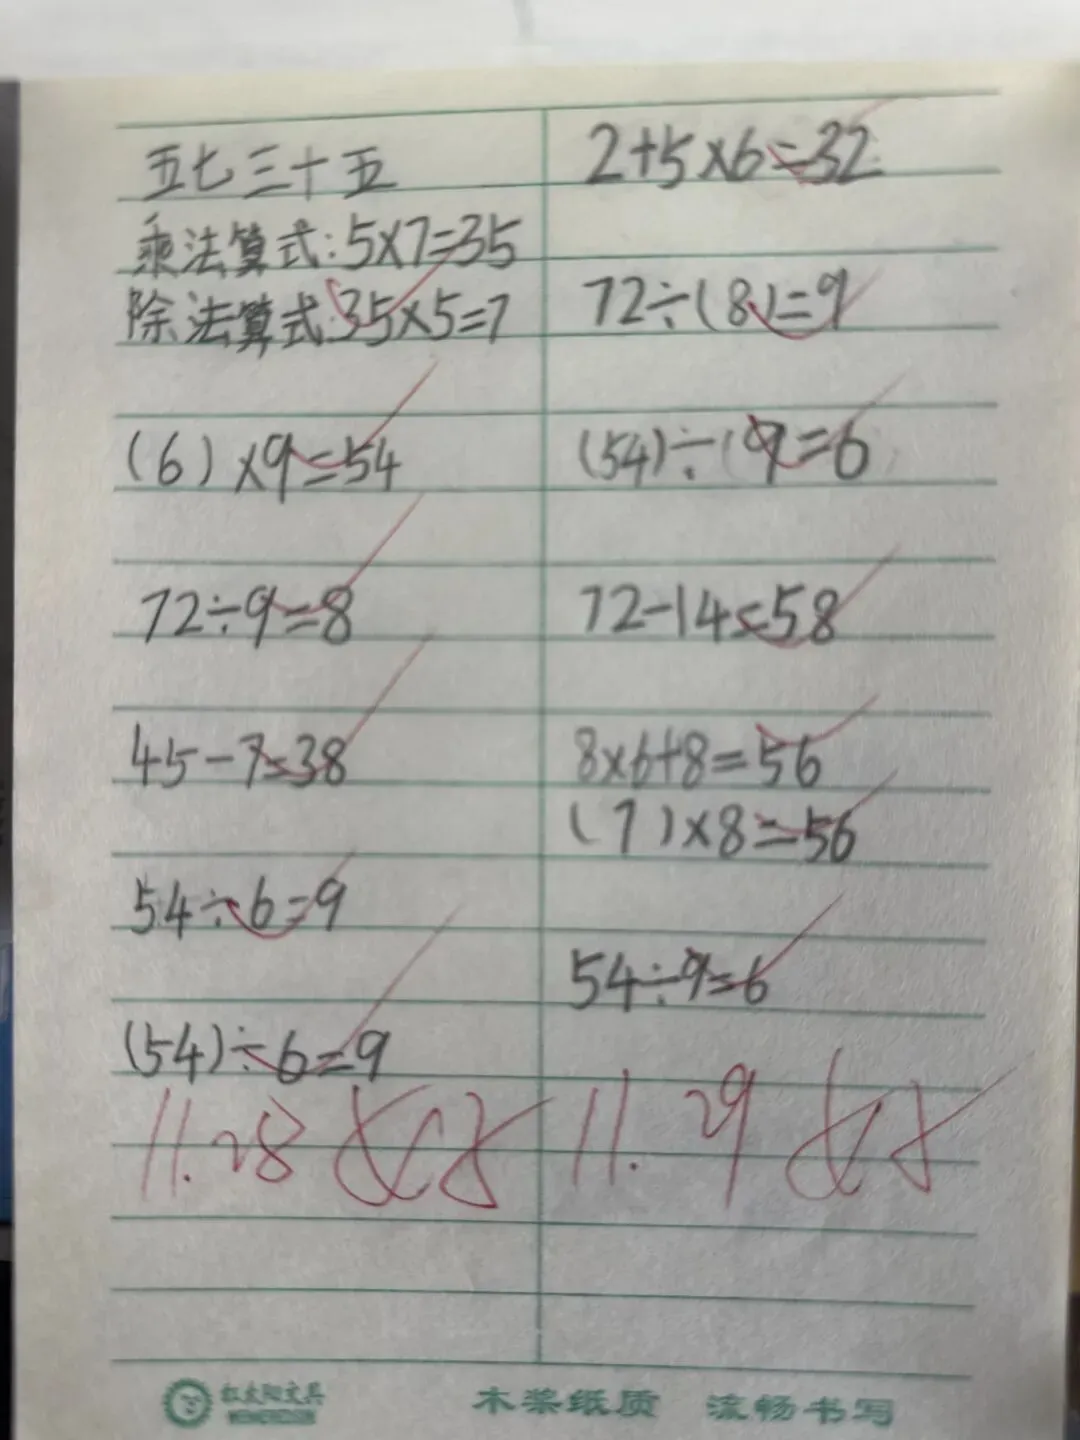 五七三十五
乘法算式:5×7=35
除法算式:35×5=7
(6)×9=54
72÷9=8
45-7=38
54÷6=9
(54)÷6=9
11.28
2+5×6=32
72÷(8)=9
(54)÷(9=6
72-14=58
8×6+8=56
(7)×8=56
54÷9=6
11.29
红太阳文具
木浆纸质 流畅书写